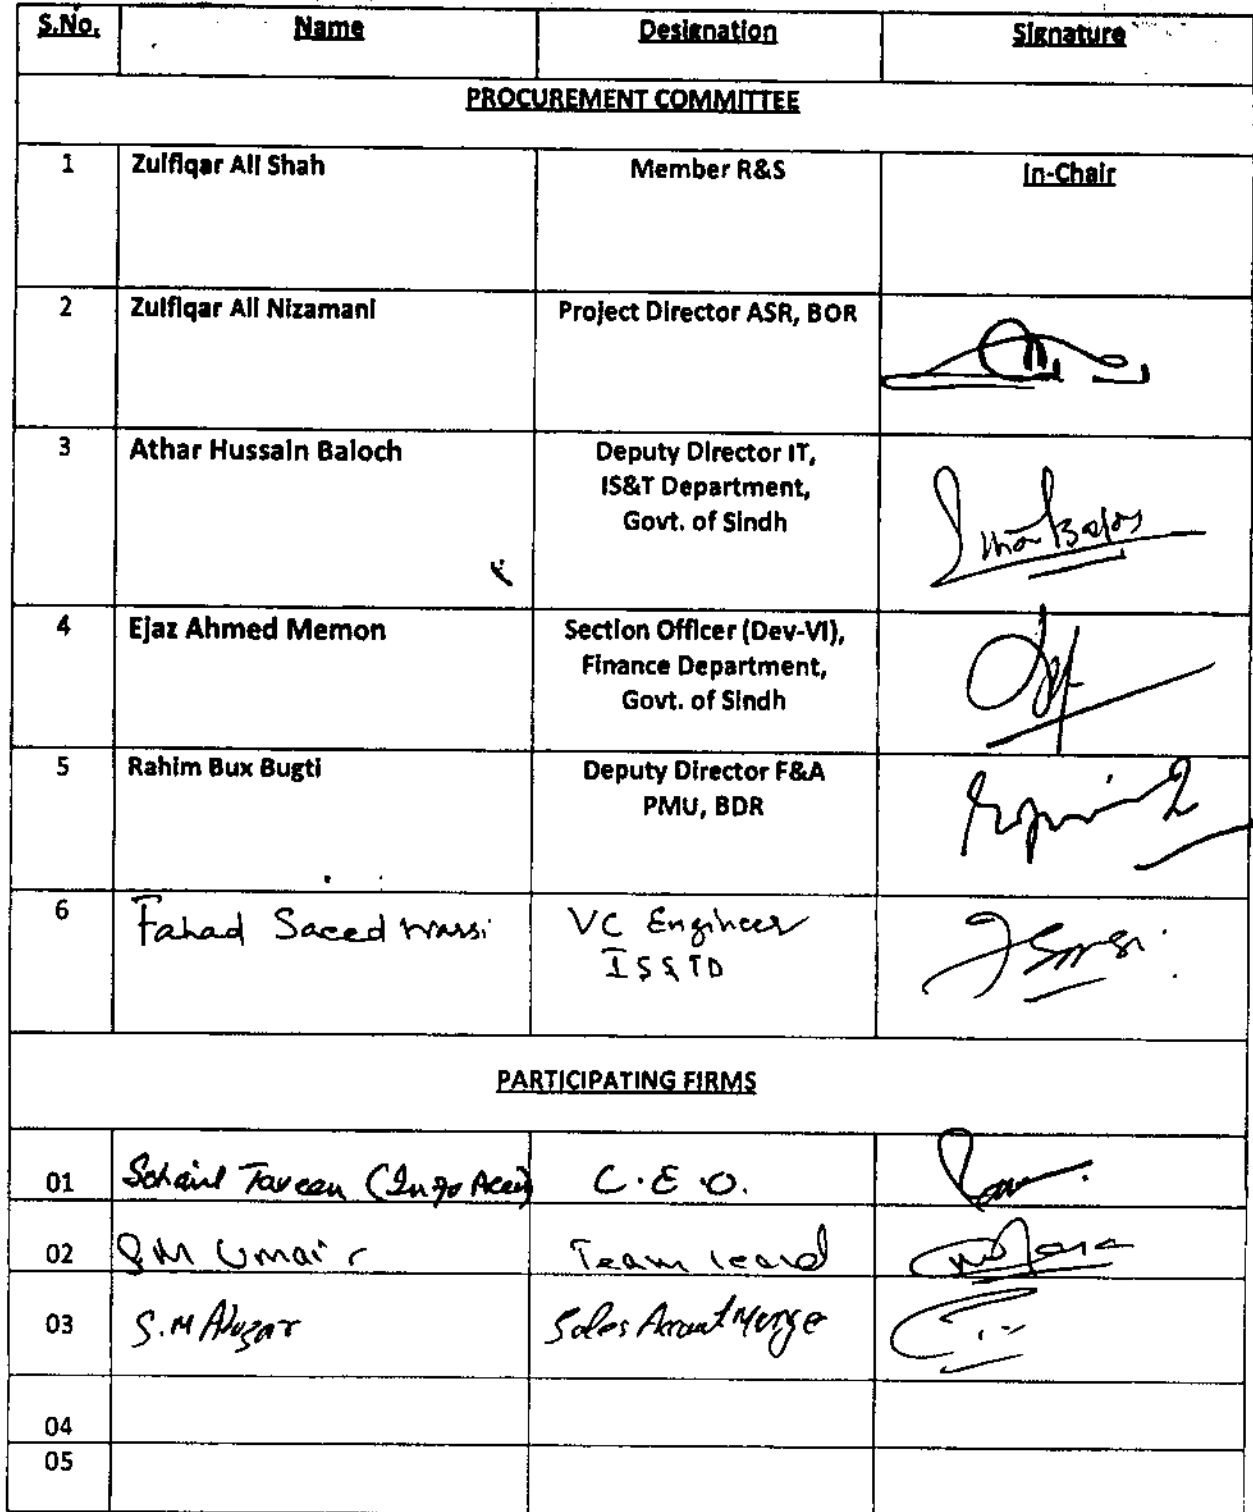 S.No. Name Designation Signature
PROCUREMENT COMMITTEE
1 Zulfiqar Ali Shah Member R&S In-Chair
2 Zulfiqar Ali Nizamani Project Director ASR, BOR
3 Athar Hussain Baloch Deputy Director IT,
IS&T Department,
Govt. of Sindh
4 Ejaz Ahmed Memon Section Officer (Dev-VI),
Finance Department,
Govt. of Sindh
5 Rahim Bux Bugti Deputy Director F&A
PMU, BDR
6 Fahad Saeed Warsi VC Engineer
IS&TD
PARTICIPATING FIRMS
01 Sohail Tareen C.E.O.
02 SM Umair Team lead
03 S.M Abuzar Sales
04
05